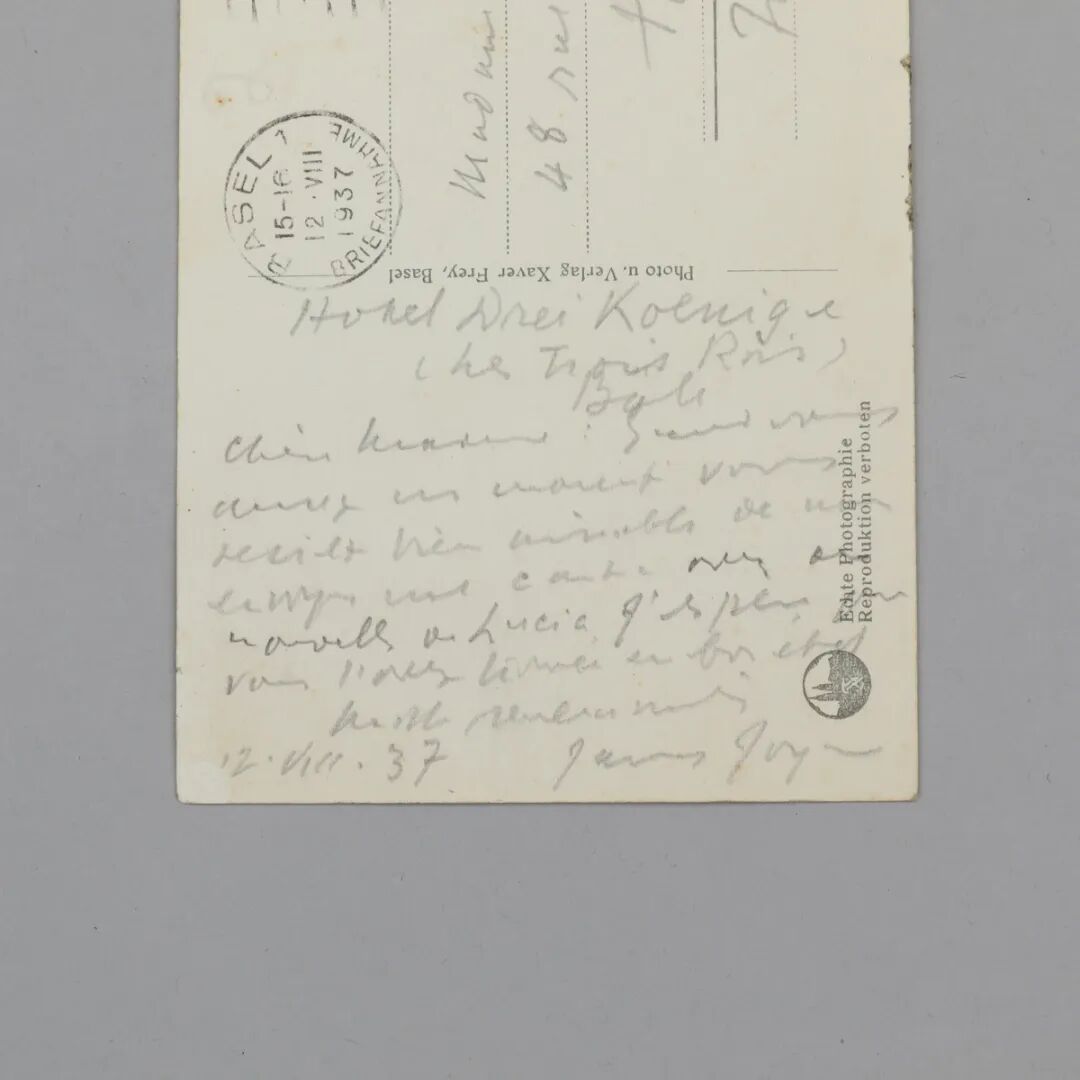 BASEL 1
15-16
12·VIII
1937
BRIEFANNAHME
Madame
48 rue
Photo u. Verlag Xaver Frey, Basel
Hotel Drei Koenige
(Les Trois Rois)
Bale
Chère Madame: Quand vous
aurez un moment voulez
bien aimable de
envoyer une carte avec
nouvelles de Lucia. J'espère que
vous l'avez trouvée en bon état
James Joyce
12.VIII.37
Echte Photographie
Reproduktion verboten